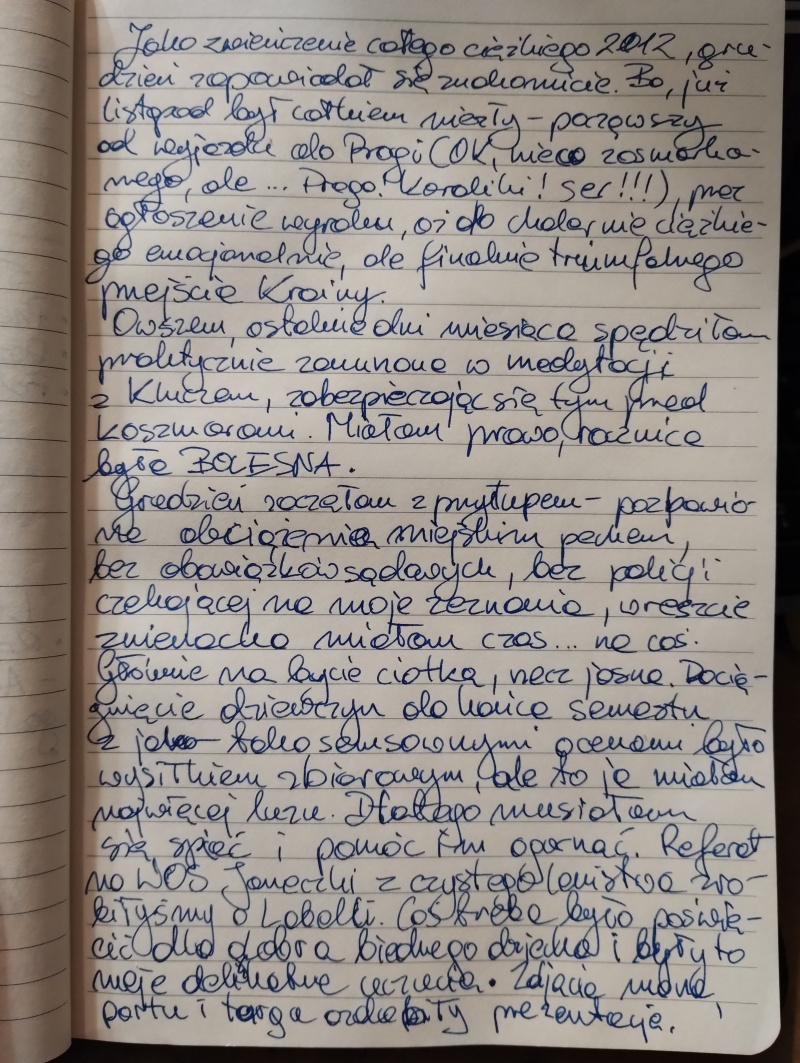 Jako zwieńczenie całego ciężkiego 2012, gru-
dzień zapowiadał się znakomicie. Bo, już
listopad był całkiem niezły - począwszy
od wyjazdu do Pragi (OK, nieco zasmarka-
nego, ale ... Praga! Koraliki! Ser!!!), przez
ogłoszenie wyroku, aż do cholernie ciężkie-
go emocjonalnie, ale finalnie triumfalnego
przejście Krainy.
Owszem, ostatnie dni miesiąca spędziłam
praktycznie zawinięta w medytacji
z Kluczem, zabezpieczając się tym przed
koszmarami. Miałam prawo, rocznica
była BOLESNA.
Grudzień zaczęłam z przytupem - pozbawio-
na obciążenia miejskim pechem,
bez obowiązków sądowych, bez policji
czekającej na moje zeznania, wreszcie
znienacka miałam czas... na coś.
Głównie na bycie ciotką, rzecz jasna. Docią-
gnięcie dziewczyn do końca semestru
z jako tako sensownymi ocenami było
wysiłkiem zbiorowym, ale to ja miałam
najwięcej luzu. Dlatego musiałam
się spiąć i pomóc im ogarnąć. Referat
na WOS Janeczki z czystego lenistwa zro-
biłyśmy o Lobelli. Coś trzeba było poświę-
cić dla dobra biednego dziecka i były to
moje delikatne uczucia. Zdjęcia
portu i targa ozdobiły prezentację.